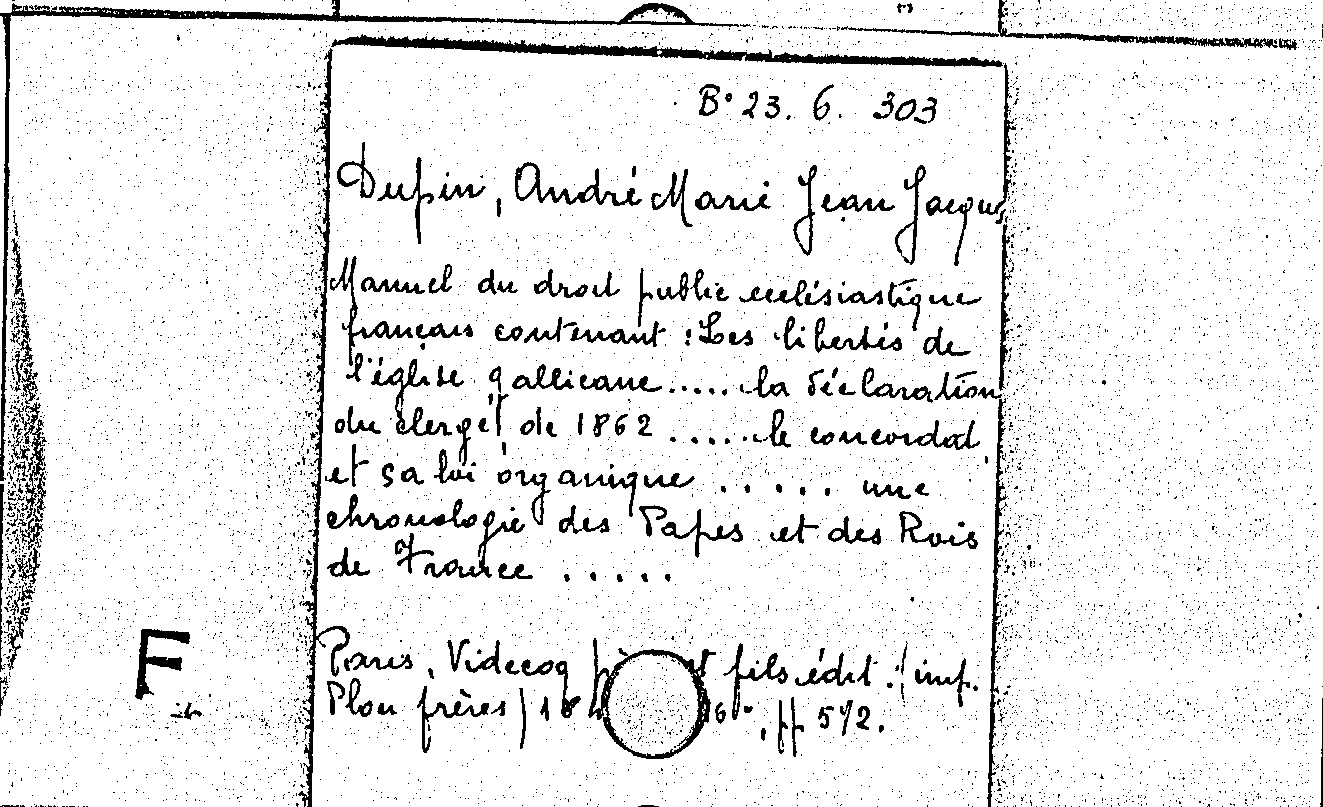 B° 23. 6. 303
Dupin, André Marie Jean Jacques
Manuel du droit public ecclésiastique
français contenant : Les libertés de
l'église gallicane..... la déclaration
du clergé de 1862 ..... le concordat
et sa loi organique ..... une
chronologie des Papes et des Rois
de France .....
Paris, Videcoq fils édit. (imp.
Plon frères) pp 572.
F